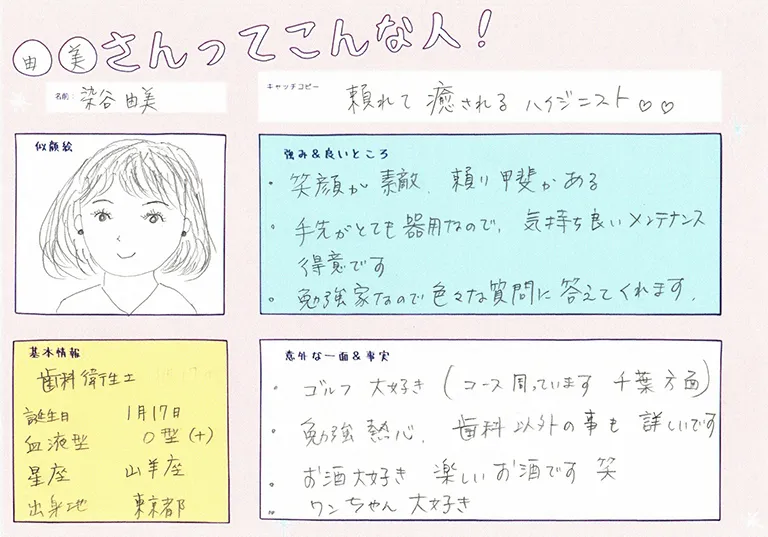 由美さんってこんな人!
名前: 染谷 由美
キャッチコピー 頼れて 癒される ハイジニスト♡♡
似顔絵
強み&良いところ
・笑顔が 素敵、頼り甲斐がある
・手先がとても器用なので、気持ち良いメンテナンス
得意です
・勉強家なので色々な質問に答えてくれます。
基本情報
歯科衛生士
誕生日 1月17日
血液型 O型(+)
星座 山羊座
出身地 東京都
意外な一面&事実
・ゴルフ 大好き (コース周っています 千葉方面)
・勉強 熱心、歯科以外の事も 詳しいです
・お酒大好き 楽しいお酒です 笑
・ワンちゃん 大好き